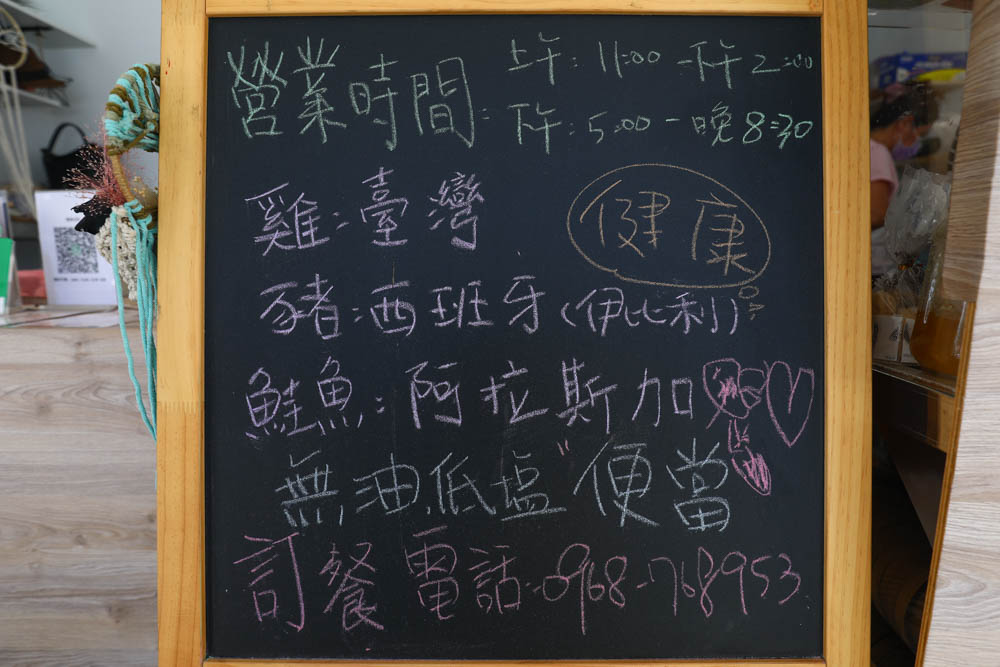 營業時間: 上午: 11:00 - 下午 2:00
下午: 5:00 - 晚 8:30
雞:臺灣
健康
豬:西班牙(伊比利)
鮭魚:阿拉斯加
無油低塩"便當
訂餐電話:0968-768953